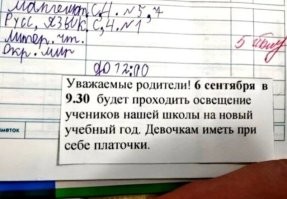 Математ С,Ч. №5,7
Русс, язык С,Ч. №1,
Литер. чт.
Окр. мир
до 12:00
Уважаемые родители! 6 сентября в
9.30 будет проходить освещение
учеников нашей школы на новый
учебный год. Девочкам иметь при
себе платочки.
меток